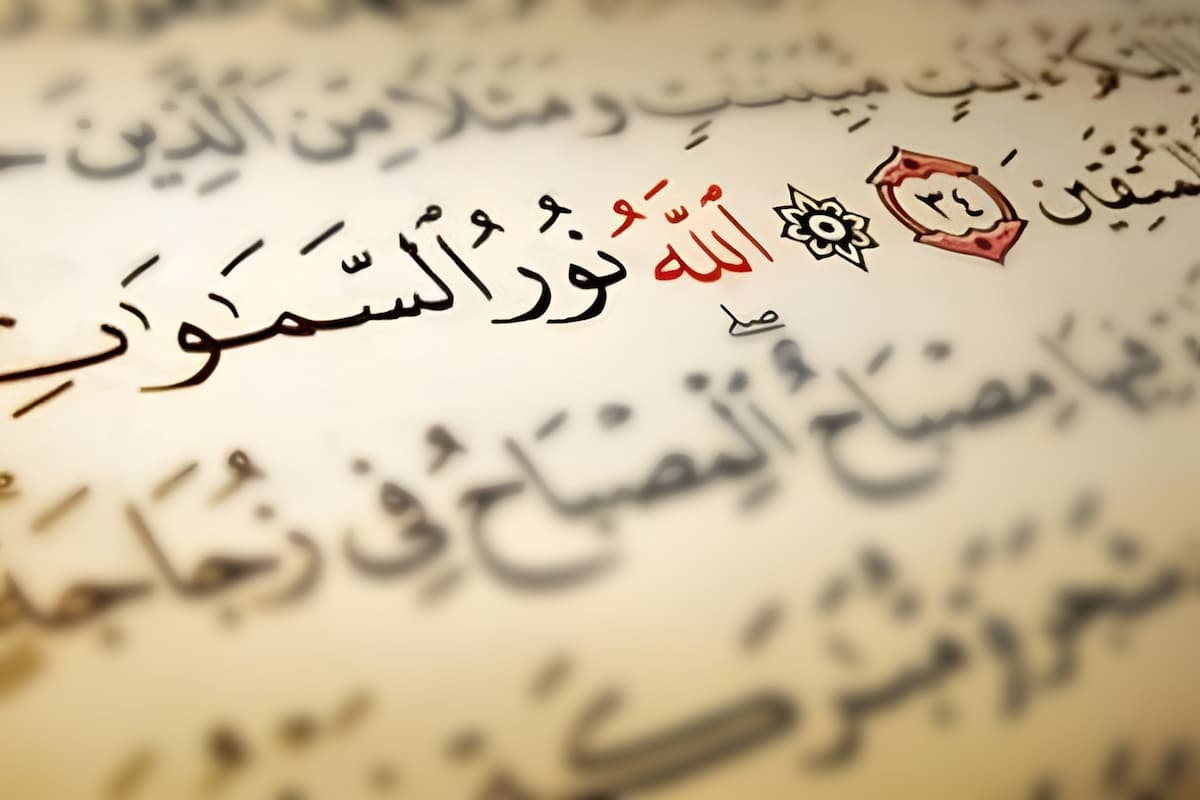 إِلَيْكُمْ ءَايَٰتٍ مُّبَيِّنَٰتٍ وَمَثَلًا مِّنَ ٱلَّذِينَ
لِّلْمُتَّقِينَ ٣٤ ۞ ٱللَّهُ نُورُ ٱلسَّمَٰوَٰتِ
فِيهَا مِصْبَاحٌ ۖ ٱلْمِصْبَاحُ فِى زُجَاجَةٍ
شَجَرَةٍ مُّبَٰرَكَةٍ